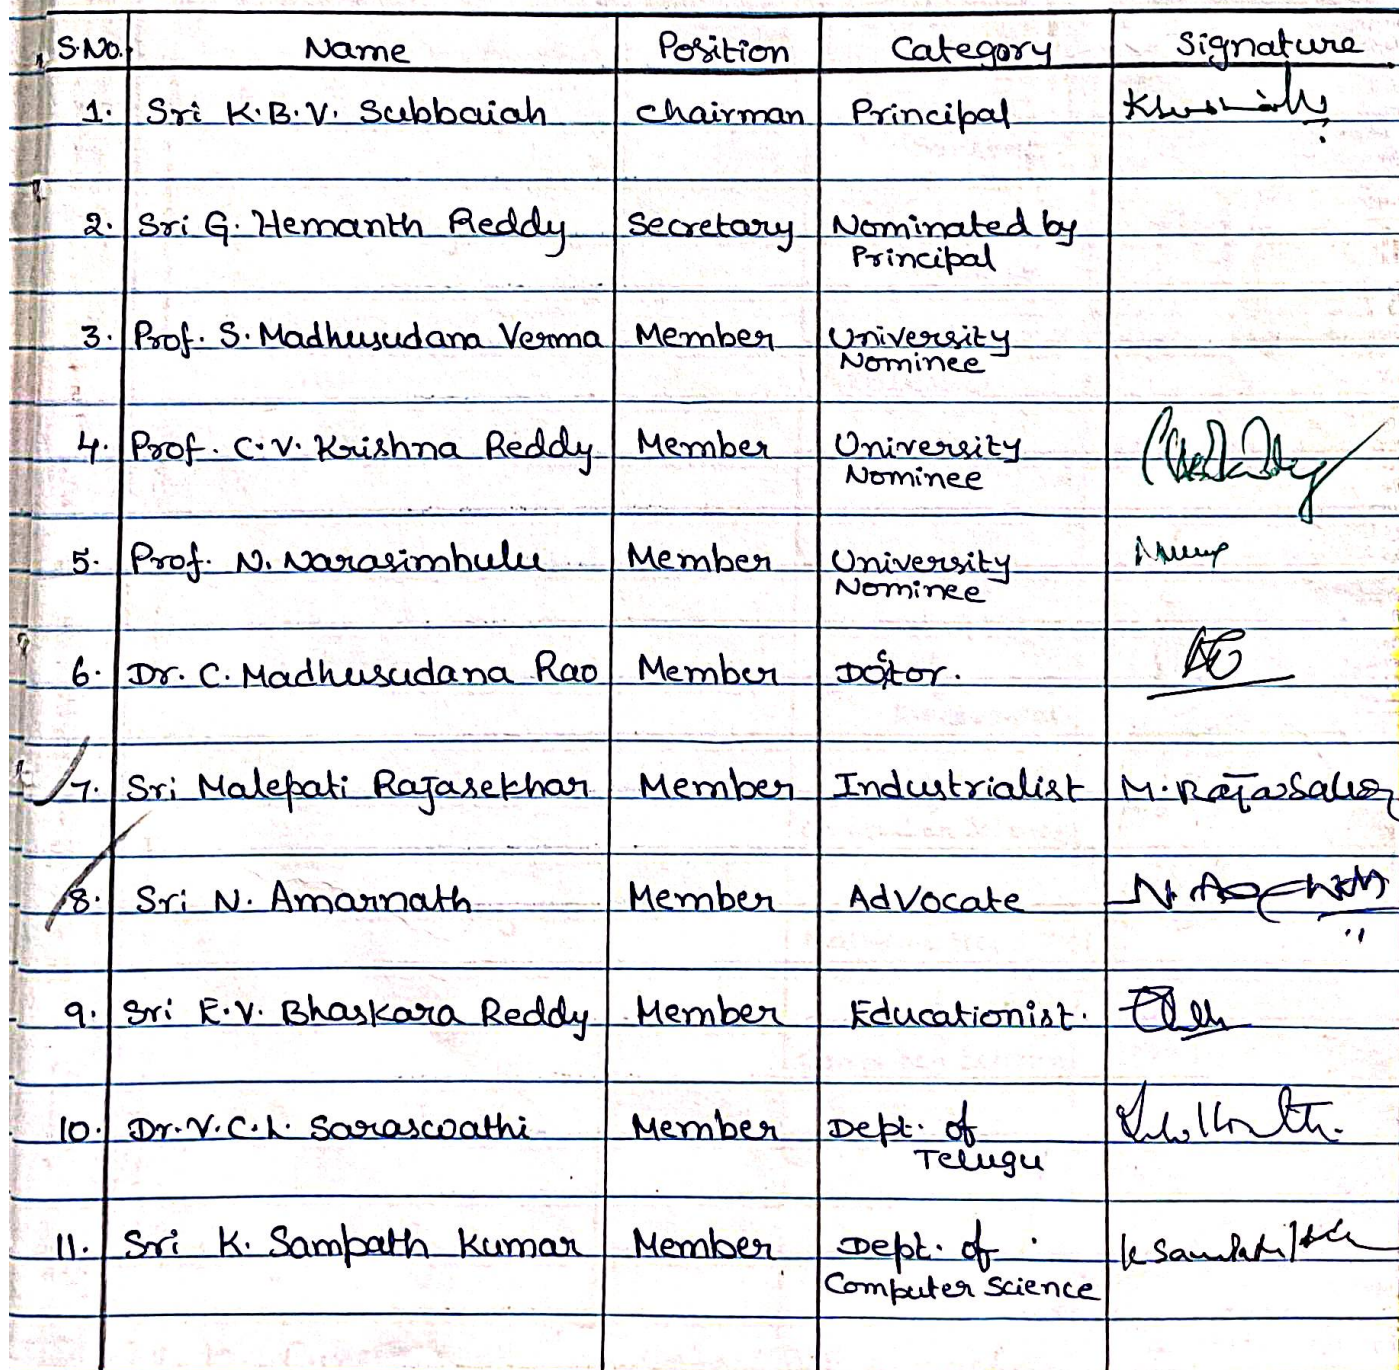 S.No. Name Position Category Signature
1. Sri K.B.V. Subbaiah Chairman Principal
2. Sri G. Hemanth Reddy Secretary Nominated by
Principal
3. Prof. S. Madhusudana Verma Member University
Nominee
4. Prof. C.V. Krishna Reddy Member University
Nominee
5. Prof. N. Narasimhulu Member University
Nominee
6. Dr. C. Madhusudana Rao Member Doctor.
7. Sri Malepati Rajasekhar Member Industrialist M. Rajasekhar
8. Sri N. Amarnath Member AdVocate
9. Sri E.V. Bhaskara Reddy Member Educationist.
10. Dr. V.C.L. Saraswathi Member Dept. of
Telugu
11. Sri K. Sampath Kumar Member Dept. of
Computer Science